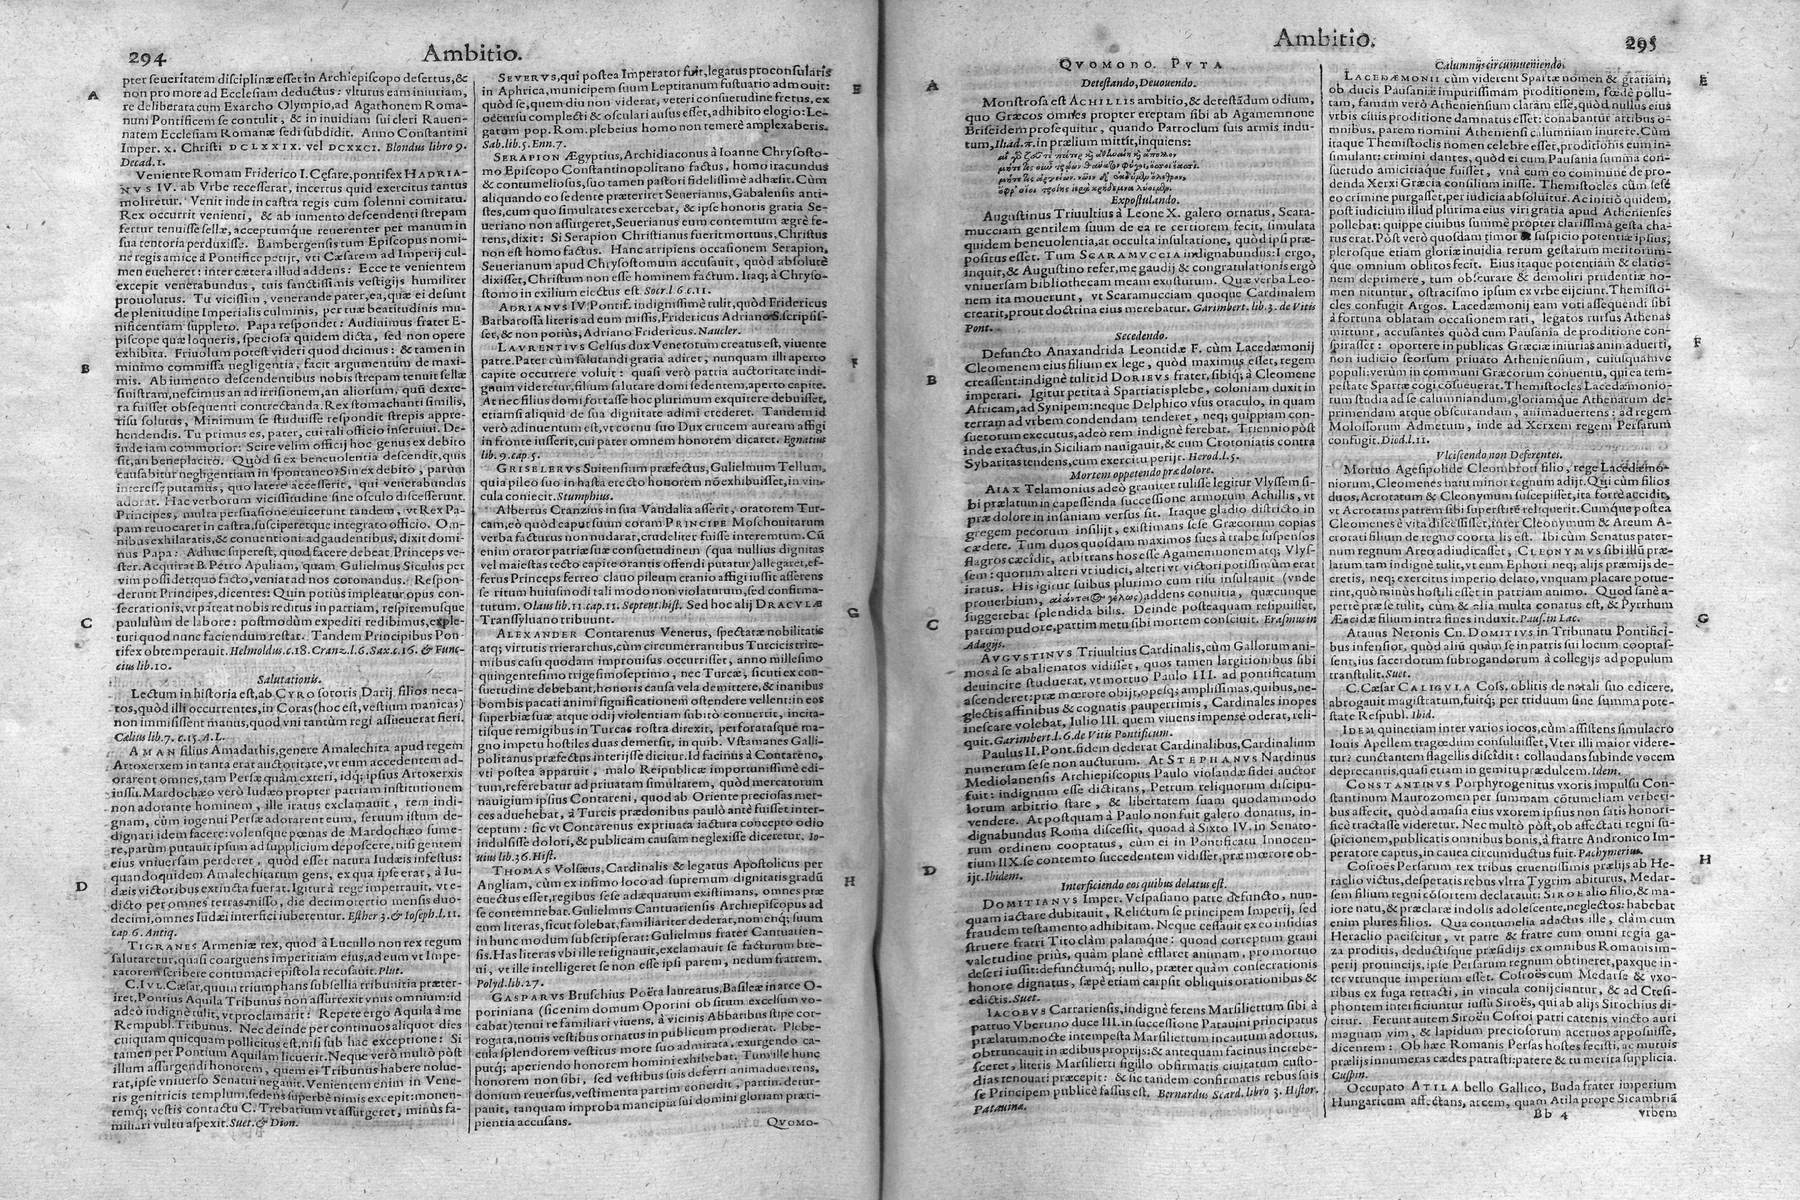 294
Ambitio.
pter seueritatem disciplinæ esset in Archiepiscopo desertus, &
non pro more ad Ecclesiam deductus: vlturus eam iniuriam,
re deliberata cum Exarcho Olympio, ad Agathonem Roma-
num Pontificem se contulit, & in inuidiam sui cleri Rauen-
natem Ecclesiam Romanæ sedi subdidit. Anno Constantini
Imper. x. Christi DCLXXIX. vel DCXXCI. Blondus libro 9.
Decad. 1.
Veniente Romam Friderico I. Cęsare, pontifex HADRIA-
NVS IV. ab Vrbe recesserat, incertus quid exercitus tantus
moliretur. Venit inde in castra regis cum solenni comitatu.
Rex occurrit venienti, & ab iumento descendenti strepam
fertur tenuisse sellæ, acceptumque reuerenter per manum in
sua tentoria perduxisse. Bambergensis tum Episcopus nomi-
ne regis amice à Pontifice petijt, vti Cæsarem ad Imperij cul-
men eucheret: inter cætera illud addens: Ecce te venientem
excepit venerabundus, tuis sanctissimis vestigijs humiliter
prouolutus. Tu vicissim, venerande pater, ea, quæ ei desunt
de plenitudine Imperialis culminis, per tuæ beatitudinis mu-
nificentiam suppleto. Papa respondet: Audiuimus frater E-
piscope quæ loqueris, speciosa quidem dicta, sed non opere
exhibita. Friuolum potest videri quod dicimus: & tamen in
minimo commissa negligentia, facit argumentum de maxi-
mis. Ab iumento descendentibus nobis strepam tenuit sellæ
sinistram, nescimus an ad irrisionem, an aliorsum, cum dexte-
ra fuisset obsequenti contrectanda. Rex stomachanti similis,
risu solutus, Minimum se studuisse respondit strepis appre-
hendendis. Tu primus es, pater, cui tali officio inseruiui. De-
inde iam commotior: Scire velim officij hoc genus ex debito
sit, an beneplacito. Quòd si ex beneuolentia descendit, quis
causabitur negligentiam in spontaneo? Sin ex debito, parum
interesse putamus, quo latere accesserit, qui venerabundus
adorat. Hac verborum vicissitudine sine osculo discesserunt.
Principes, multa persuasione euicerunt tandem, vt Rex Pa-
pam reuocaret in castra, susciperetque integrato officio. Om-
nibus exhilaratis, & conuentioni adgaudentibus, dixit domi-
nus Papa: Adhuc superest, quod facere debeat Princeps ve-
ster. Acquirat B. Petro Apuliam, quam Gulielmus Siculus per
vim possidet: quo facto, veniat ad nos coronandus. Respon-
derunt Principes, dicentes: Quin potiùs impleatur opus con-
secrationis, vt pateat nobis reditus in patriam, respiremusque
paululùm de labore: postmodùm expediti redibimus, exple-
turi quod nunc faciendum restat. Tandem Principibus Pon-
tifex obtemperauit. Helmoldus. c. 18. Cranz. l. 6. Sax. c. 16. & Func-
cius lib. 10.
Salutationis.
Lectum in historia est, ab CYRO sororis Darij filios neca-
tos, quòd illi occurrentes, in Coras (hoc est, vestium manicas)
non immisissent manus, quod vni tantùm regi assueuerat fieri.
Cælius lib. 7. c. 15. A. L.
AMAN filius Amadathis, genere Amalechita apud regem
Artoxerxem in tanta erat auctoritate, vt eum accedentem ad-
orarent omnes, tam Persæ quàm exteri, idq; ipsius Artoxerxis
iussu. Mardochæo verò Iudæo propter patriam institutionem
non adorante hominem, ille iratus exclamauit, rem indi-
gnam, cùm ingenui Persæ adorarent eum, seruum istum de-
dignari idem facere: volensque pœnas de Mardochæo sume-
re, parùm putauit ipsum ad supplicium deposcere, nisi gentem
eius vniuersam perderet, quòd esset natura Iudæis infestus:
quandoquidem Amalechitarum gens, ex qua ipse erat, à Iu-
dæis victoribus extincta fuerat. Igitur à rege impetrauit, vt e-
dicto per omnes terras misso, die decimotertio mensis duo-
decimi, omnes Iudæi interfici iuberentur. Esther 3. & Ioseph. l. 11.
cap. 6. Antiq.
TIGRANES Armeniæ rex, quod à Lucullo non rex regum
salutaretur, quasi coarguens imperitiam eius, ad eum vt Impe-
ratorem scribere contumaci epistola recusauit. Plut.
C. IVL. Cæsar, quum triumphans subsellia tribunitia præter-
iret, Pontius Aquila Tribunus non assurrexit vnus omnium: id
adeò indignè tulit, vt proclamarit: Repete ergo Aquila à me
Rempubl. Tribunus. Nec deinde per continuos aliquot dies
cuiquam quicquam pollicitus est, nisi sub hac exceptione: Si
tamen per Pontium Aquilam licuerit. Neque verò multò pòst
illum assurgendi honorem, quem ei Tribunus habere nolue-
rat, ipse vniuerso Senatui negauit. Venientem enim in Vene-
ris genitricis templum, sedens superbè nimis excepit: monen-
temq; vestis contactu C. Trebatium vt assurgeret, minùs fa-
miliari vultu aspexit. Suet. & Dion.
A
B
C
D
SEVERVS, qui postea Imperator fuit, legatus proconsularis
in Aphrica, municipem suum Leptitanum fustuario admouit:
quòd se, quem diu non viderat, veteri consuetudine fretus, ex
occursu complecti & osculari ausus esset, adhibito elogio: Le-
gatum pop. Rom. plebeius homo non temerè amplexaberis.
Sab. lib. 5. Enn. 7.
SERAPION Ægyptius, Archidiaconus à Ioanne Chrysosto-
mo Episcopo Constantinopolitano factus, homo iracundus
& contumeliosus, suo tamen pastori fidelissimè adhæsit. Cùm
aliquando eo sedente præteriret Seuerianus, Gabalensis anti-
stes, cum quo simultates exercebat, & ipse honoris gratia Se-
ueriano non assurgeret, Seuerianus eum contemtum ægrè fe-
rens, dixit: Si Serapion Christianus fuerit mortuus, Christus
non est homo factus. Hanc arripiens occasionem Serapion,
Seuerianum apud Chrysostomum accusauit, quòd absolutè
dixisset, Christum non esse hominem factum. Itaq; à Chryso-
stomo in exilium eiectus est. Socr. l. 6. c. 11.
ADRIANVS IV. Pontif. indignissimè tulit, quòd Fridericus
Barbarossa literis ad eum missis, Fridericus Adriano S. scripsis-
set, & non potiùs, Adriano Fridericus. Naucler.
LAVRENTIVS Celsus dux Venetorum creatus est, viuente
patre. Pater cùm salutandi gratia adiret, nunquam illi aperto
capite occurrere voluit: quasi verò patria auctoritate indi-
gnum videretur, filium salutare domi sedentem, aperto capite.
At nec filius domi fortasse hoc plurimum exquirere debuisset,
etiamsi aliquid de sua dignitate adimi crederet. Tandem id
verò adinuentum est, vt cornu suo Dux crucem auream affigi
in fronte iusserit, cui pater omnem honorem dicaret. Egnatius
lib. 9. cap. 5.
GRISELERVS Suitensium præfectus, Gulielmum Tellum,
quia pileo suo in hasta erecto honorem nõ exhibuisset, in vin-
cula coniecit. Stumphius.
Albertus Cranzius in sua Vandalia asserit, oratorem Tur-
cam, eo quòd caput suum coram PRINCIPE Moschouitarum
verba facturus non nudarat, crudeliter fuisse interemtum. Cũ
enim orator patriæ suæ consuetudinem (qua nullius dignitas
vel maiestas tecto capite orantis offendi putatur) allegaret, ef-
ferus Princeps ferreo clauo pileum cranio affigi iussit asserens
se ritum huiusmodi tali modo non violaturum, sed confirma-
turum. Olaus lib. 11. cap. 11. Septent. hist. Sed hoc alij DRACVLÆ
Transsyluano tribuunt.
ALEXANDER Contarenus Venetus, spectatæ nobilitatis
atq; virtutis trierarchus, cùm circumerrantibus Turcicis trire-
mibus casu quodam improuisus occurrisset, anno millesimo
quingentesimo trigesimoseptimo, nec Turcæ, sicuti ex con-
suetudine debebant, honoris causa vela demittere, & inanibus
bombis pacati animi significationem ostendere vellent: in eos
superbiæ suæ atque odij violentiam subitò conuertit, incita-
tisque remigibus in Turcas rostra direxit, perforatasque ma-
gno impetu hostiles duas demersit, in quib. Vstamanes Galli-
politanus præfectus interijsse dicitur. Id facinus à Contareno,
vti postea apparuit, malo Reipublicæ importunissimè edi-
tum, referebatur ad priuatam simultatem, quòd mercatorum
nauigium ipsius Contareni, quod ab Oriente preciosas mer-
ces aduehebat, à Turcis prædonibus paulò antè fuisset inter-
ceptum: sic vt Contarenus ex priuata iactura concepto odio
indulsisse dolori, & publicam causam neglexisse diceretur. Io-
uius lib. 36. Hist.
THOMAS Volsæus, Cardinalis & legatus Apostolicus per
Angliam, cùm ex infimo loco ad supremum dignitatis gradũ
euectus esset, regibus sese adæquatum existimans, omnes præ
se contemnebat. Gulielmus Cantuariensis Archiepiscopus ad
eum literas, sicut solebat, familiariter dederat, nomenq; suum
in hunc modum subscripserat: Gulielmus frater Cantuarien-
sis. Has literas vbi ille resignauit, exclamauit se facturum bre-
ui, vt ille intelligeret se non esse ipsi parem, nedum fratrem.
Polyd. lib. 27.
GASPARVS Bruschius Poëta laureatus, Basileæ in arce O-
poriniana (sic enim domum Oporini ob situm excelsum vo-
cabat) tenui re familiari viuens, à vicinis Abbatibus stipe cor-
rogata, nouis vestibus ornatus in publicum prodierat. Plebe-
cula splendorem vestitus more suo admirata, exurgendo ca-
putq; aperiendo honorem homini exhibebat. Tum ille hunc
honorem non sibi, sed vestibus suis deferri animaduertens,
domsum reuersus, vestimenta partim concidit, partim detur-
pauit, tanquam improba mancipia sui domini gloriam præri-
pientia accusans.
QVOMO-
E
F
G
H
Ambitio.
295
QVOMODO. PVTA
Detestando, Deuouendo.
Monstrosa est ACHILLIS ambitio, & detestãdum odium,
quo Græcos omnes propter ereptam sibi ab Agamemnone
Briseidem prosequitur, quando Patroclum suis armis indu-
tum, Iliad. π. in prælium mittit, inquiens:
Expostulando.
Augustinus Triuultius à Leone X. galero ornatus, Scara-
mucciam gentilem suum de ea re certiorem fecit, simulata
quidem beneuolentia, at occulta insultatione, quòd ipsi præ-
positus esset. Tum SCARAMVCCIA indignabundus: I ergo,
inquit, & Augustino refer, me gaudij & congratulationis ergò
vniuersam bibliothecam meam exusturum. Quæ verba Leo-
nem ita mouerunt, vt Scaramucciam quoque Cardinalem
crearit, prout doctrina eius merebatur. Garimbert. lib. 3. de Vitis
Pont.
Secedendo.
Defuncto Anaxandrida Leontidæ F. cùm Lacedæmonij
Cleomenem eius filium ex lege, quòd maximus esset, regem
creassent: indignè tulit id DORIEVS frater, sibiq; à Cleomene
imperari. Igitur petita à Spartiatis plebe, coloniam duxit in
Africam, ad Synipem: neque Delphico vsus oraculo, in quam
terram ad vrbem condendam tenderet, neq; quippiam con-
suetorum executus, adeò rem indignè ferebat. Triennio pòst
inde exactus, in Siciliam nauigauit, & cum Crotoniatis contra
Sybaritas tendens, cum exercitu perijt. Herod. l. 5.
Mortem oppetendo præ dolore.
AIAX Telamonius adeò grauiter tulisse legitur Vlyssem si-
bi prælatum in capessenda successione armorum Achillis, vt
præ dolore in insaniam versus sit. Itaque gladio districto in
gregem pecorum insilijt, existimans sese Græcorum copias
cædere. Tum duos quosdam maximos sues à trabe suspensos
flagris cæcidit, arbitrans hos esse Agamemnonem atq; Vlys-
sem: quorum alteri vt iudici, alteri vt victori potissimùm erat
iratus. His igitur suibus plurimo cum risu insultauit (vnde
prouerbium, αἰάντειος γέλως) addens conuitia, quæcunque
suggerebat splendida bilis. Deinde posteaquam resipuisset,
partim pudore, partim metu sibi mortem consciuit. Erasmus in
Adagijs.
AVGVSTINVS Triuultius Cardinalis, cùm Gallorum ani-
mos à se abalienatos vidisset, quos tamen largitionibus sibi
deuincire studuerat, vt mortuo Paulo III. ad pontificatum
ascenderet: præ mœrore obijt, opesq; amplissimas, quibus, ne-
glectis affinibus & cognatis pauperrimis, Cardinales inopes
inescare volebat, Iulio III. quem viuens impensè oderat, reli-
quit. Garimbert. l. 6. de Vitis Pontificum.
Paulus II. Pont. fidem dederat Cardinalibus, Cardinalium
numerum sese non aucturum. At STEPHANVS Nardinus
Mediolanensis Archiepiscopus Paulo violandæ fidei auctor
fuit: indignum esse dictitans, Petrum reliquorum discipu-
lorum arbitrio stare, & libertatem suam quodammodo
vendere. At postquam à Paulo non fuit galero donatus, in-
dignabundus Roma discessit, quoad à Sixto IV. in Senato-
rum ordinem cooptatus, cùm ei in Pontificatu Innocen-
tium IIX. se contemto succedentem vidisset, præ mœrore ob-
ijt. Ibidem.
Interficiendo eos quibus delatus est.
DOMITIANVS Imper. Vespasiano patre defuncto, nun-
quam iactare dubitauit, Relictum se principem Imperij, sed
fraudem testamento adhibitam. Neque cessauit ex eo insidias
struere fratri Tito clàm palamque: quoad correptum graui
valetudine priùs, quàm planè efflaret animam, pro mortuo
deseri iussit: defunctumq; nullo, præter quàm consecrationis
honore dignatus, sæpè etiam carpsit obliquis orationibus &
edictis. Suet.
IACOBVS Carrariensis, indignè ferens Marsilietum sibi à
patruo Vbertino duce III. in successione Patauini principatus
prælatum: nocte intempesta Marsilietum incautum adortus,
obtruncauit in ædibus proprijs: & antequam facinus increbe-
sceret, literis Marsilieti sigillo obsirmatis ciuitatum custo-
dias renouari præcepit: & sic tandem confirmatis rebus suis
se Principem publicè fassus est. Bernardus Scard. libro 3. Histor.
Patauinæ.
A
B
C
D
Calumnijs circumueniendo.
LACEDÆMONII cùm viderent Spartæ nomen & gratiam,
ob ducis Pausaniæ impurissimam proditionem, fœdè pollu-
tam, famam verò Atheniensium claram esse, quòd nullus eius
vrbis ciuis proditione damnatus esset: conabantur artibus o-
mnibus, parem nomini Atheniensi calumniam inurere. Cùm
itaque Themistoclis nomen celebre esset, proditionis eum in-
simulant: crimini dantes, quòd ei cum Pausania summa con-
suetudo amicitiaque fuisset, vnà cum eo commune de pro-
denda Xerxi Græcia consilium inisse. Themistocles cùm sese
eo crimine purgasset, per iudicia absoluitur. Ac initiò quidem,
post iudicium illud plurima eius viri gratia apud Athenienses
pollebat: quippe ciuibus summè propter clarissima gesta cha-
rus erat. Pòst verò quosdam timor & suspicio potentiæ ipsius,
plerosque etiam gloriæ inuidia rerum gestarum meritorum-
que omnium oblitos fecit. Eius itaque potentiam & elatio-
nem deprimere, tum obscurare & demoliri prudentiæ no-
men nituntur, ostracismo ipsum ex vrbe eijciunt. Themisto-
cles confugit Argos. Lacedemonij eam voti assequendi sibi
à fortuna oblatam occasionem rati, legatos rursus Athenas
mittunt, accusantes quòd cum Pausania de proditione con-
spirasset: oportere in publicas Græciæ iniurias animaduerti,
non iudicio seorsum priuato Atheniensium, cuiusquamve
populi: verùm in communi Græcorum conuentu, qui ea tem-
pestate Spartæ cogi cõsueuerat. Themistocles Lacedæmonio-
rum studia ad se calumniandum, gloriamque Athenarum de-
primendam atque obscurandam, animaduertens: ad regem
Molossorum Admetum, inde ad Xerxem regem Persarum
confugit. Diod. l. 11.
Vlciscendo non Deferentes.
Mortuo Agesipolide Cleombroti filio, rege Lacedæmo-
niorum, Cleomenes natu minor regnum adijt. Qui cùm filios
duos, Acrotatum & Cleonymum suscepisset, ita fortè accidit,
vt Acrotatus patrem sibi superstitẽ reliquerit. Cumque postea
Cleomenes è vita discessisset, inter Cleonymum & Areum A-
crotati filium de regno coorta lis est. Ibi cùm Senatus pater-
num regnum Areo adiudicasset, CLEONYMVS sibi illũ præ-
latum tam indignè tulit, vt eum Ephori neq; alijs præmijs de-
cretis, neq; exercitus imperio delato, vnquam placare potue-
rint, quo minùs hostili esset in patriam animo. Quod sanè a-
pertè præ se tulit, cùm & alia multa conatus est, & Pyrrhum
Æacidæ filium intra fines induxit. Paus. in Lac.
Atauus Neronis Cn. DOMITIVS in Tribunatu Pontifici-
bus infensior, quòd aliũ quàm se in patris sui locum cooptas-
sent, ius sacerdotum subrogandorum à collegijs ad populum
transtulit. Suet.
C. Cæsar CALIGVLA Coss. oblitis de natali suo edicere,
abrogauit magistratum, fuitq; per triduum sine summa pote-
state Respubl. Ibid.
IDEM quinetiam inter varios iocos, cùm assistens simulacro
Iouis Apellem tragœdum consuluisset, Vter illi maior videre-
tur? cunctantem flagellis discidit: collaudans subinde vocem
deprecantis, quasi etiam in gemitu prædulcem. Idem.
CONSTANTINVS Porphyrogenitus vxoris impulsu Con-
stantinum Maurozomen per summam cõtumeliam verberi-
bus affecit, quòd amasia eius vxorem ipsius non satis honori-
ficè tractasse videretur. Nec multò pòst, ob affectati regni su-
spicionem, publicatis omnibus bonis, à fratre Andronico Im-
peratore captus, in cauea circumductus fuit. Pachymerius.
Cosroës Persarum rex tribus cruentissimis prælijs ab He-
raclio victus, desperatis rebus vltra Tygrim abiturus, Medar-
sem filium regni cõsortem declarauit: SIROE alio filio, & ma-
iore natu, & præclaræ indolis adolescente, neglectos: habebat
enim plures filios. Qua contumelia adactus ille, clàm cum
Heraclio paciscitur, vt patre & fratre cum omni regia ga-
za proditis, deductisque præsidijs ex omnibus Romanis im-
perij prouincijs, ipse Persarum regnum obtineret, paxque in-
ter vtrunque imperium esset. Cosroës cum Medarse & vxo-
ribus ex fuga retracti, in vincula conijciuntur, & ad Cresi-
phontem interficiuntur iussu Siroës, qui ab alijs Sirochius di-
citur. Ferunt autem Siroën Cosroi patri catenis vincto auri
magnam vim, & lapidum preciosorum aceruos apposuisse,
dicentem: Ob hæc Romanis Persas hostes fecisti, ac mutuis
prælijs innumeras cædes patrasti: patere & tu merita supplicia.
Cuspin.
Occupato ATILA bello Gallico, Buda frater imperium
Hungaricum affectans, arcem, quam Atila prope Sicambriã
Bb 4
vrbem
E
F
G
H